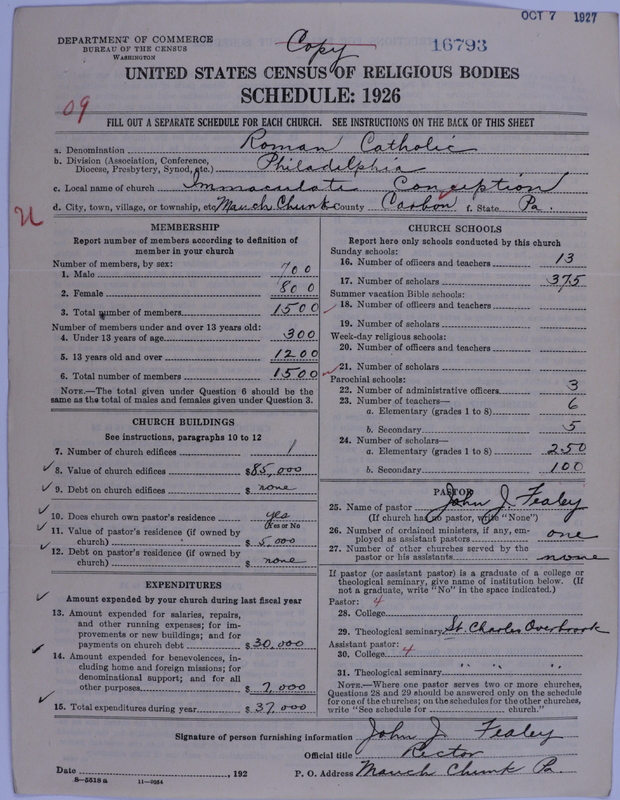 OCT 7 1927
DEPARTMENT OF COMMERCE
BUREAU OF THE CENSUS
WASHINGTON
Copy
16793
UNITED STATES CENSUS OF RELIGIOUS BODIES
SCHEDULE: 1926
09
FILL OUT A SEPARATE SCHEDULE FOR EACH CHURCH. SEE INSTRUCTIONS ON THE BACK OF THIS SHEET
a. Denomination Roman Catholic
b. Division (Association, Conference, Diocese, Presbytery, Synod, etc.) Philadelphia
c. Local name of church Immaculate Conception
d. City, town, village, or township, etc Mauch Chunk County Carbon f. State Pa.
MEMBERSHIP
Report number of members according to definition of
member in your church
Number of members, by sex:
1. Male 700
2. Female 800
3. Total number of members 1500
Number of members under and over 13 years old:
4. Under 13 years of age 300
5. 13 years old and over 1200
6. Total number of members 1500
NOTE.—The total given under Question 6 should be
same as the total of males and females given under Question 3.
CHURCH BUILDINGS
See instructions, paragraphs 10 to 12
7. Number of church edifices 1
8. Value of church edifices $85,000
9. Debt on church edifices $ none
10. Does church own pastor's residence yes
(Yes or No)
11. Value of pastor's residence (if owned by
church) $5,000
12. Debt on pastor's residence (if owned by
church) $ none
EXPENDITURES
Amount expended by your church during last fiscal year
13. Amount expended for salaries, repairs,
and other running expenses; for im-
provements or new buildings; and for
payments on church debt $30,000
14. Amount expended for benevolences, in-
cluding home and foreign missions; for
denominational support; and for all
other purposes $7,000
15. Total expenditures during year $37,000
CHURCH SCHOOLS
Report here only schools conducted by this church
Sunday schools:
16. Number of officers and teachers 13
17. Number of scholars 375
Summer vacation Bible schools:
18. Number of officers and teachers
19. Number of scholars
Week-day religious schools:
20. Number of officers and teachers
21. Number of scholars
Parochial schools:
22. Number of administrative officers 3
23. Number of teachers—
a. Elementary (grades 1 to 8) 6
b. Secondary 5
24. Number of scholars—
a. Elementary (grades 1 to 8) 250
b. Secondary 100
PASTOR
25. Name of pastor John J. Fealey
(If church has no pastor, write "None")
26. Number of ordained ministers, if any, em-
ployed as assistant pastors one
27. Number of other churches served by the
pastor or his assistants none
If pastor (or assistant pastor) is a graduate of a college or
theological seminary, give name of institution below. (If
not a graduate, write "No" in the space indicated.)
Pastor: 4
28. College
29. Theological seminary St. Charles Overbrook
Assistant pastor:
30. College 4
31. Theological seminary " " "
NOTE.—Where one pastor serves two or more churches,
Questions 28 and 29 should be answered only on the schedule
for one of the churches; on the schedules for the other churches,
write "See schedule for church."
Signature of person furnishing information John J. Fealey
Official title Rector
Date , 192 P. O. Address Mauch Chunk Pa.
8—5518 a 11—9054